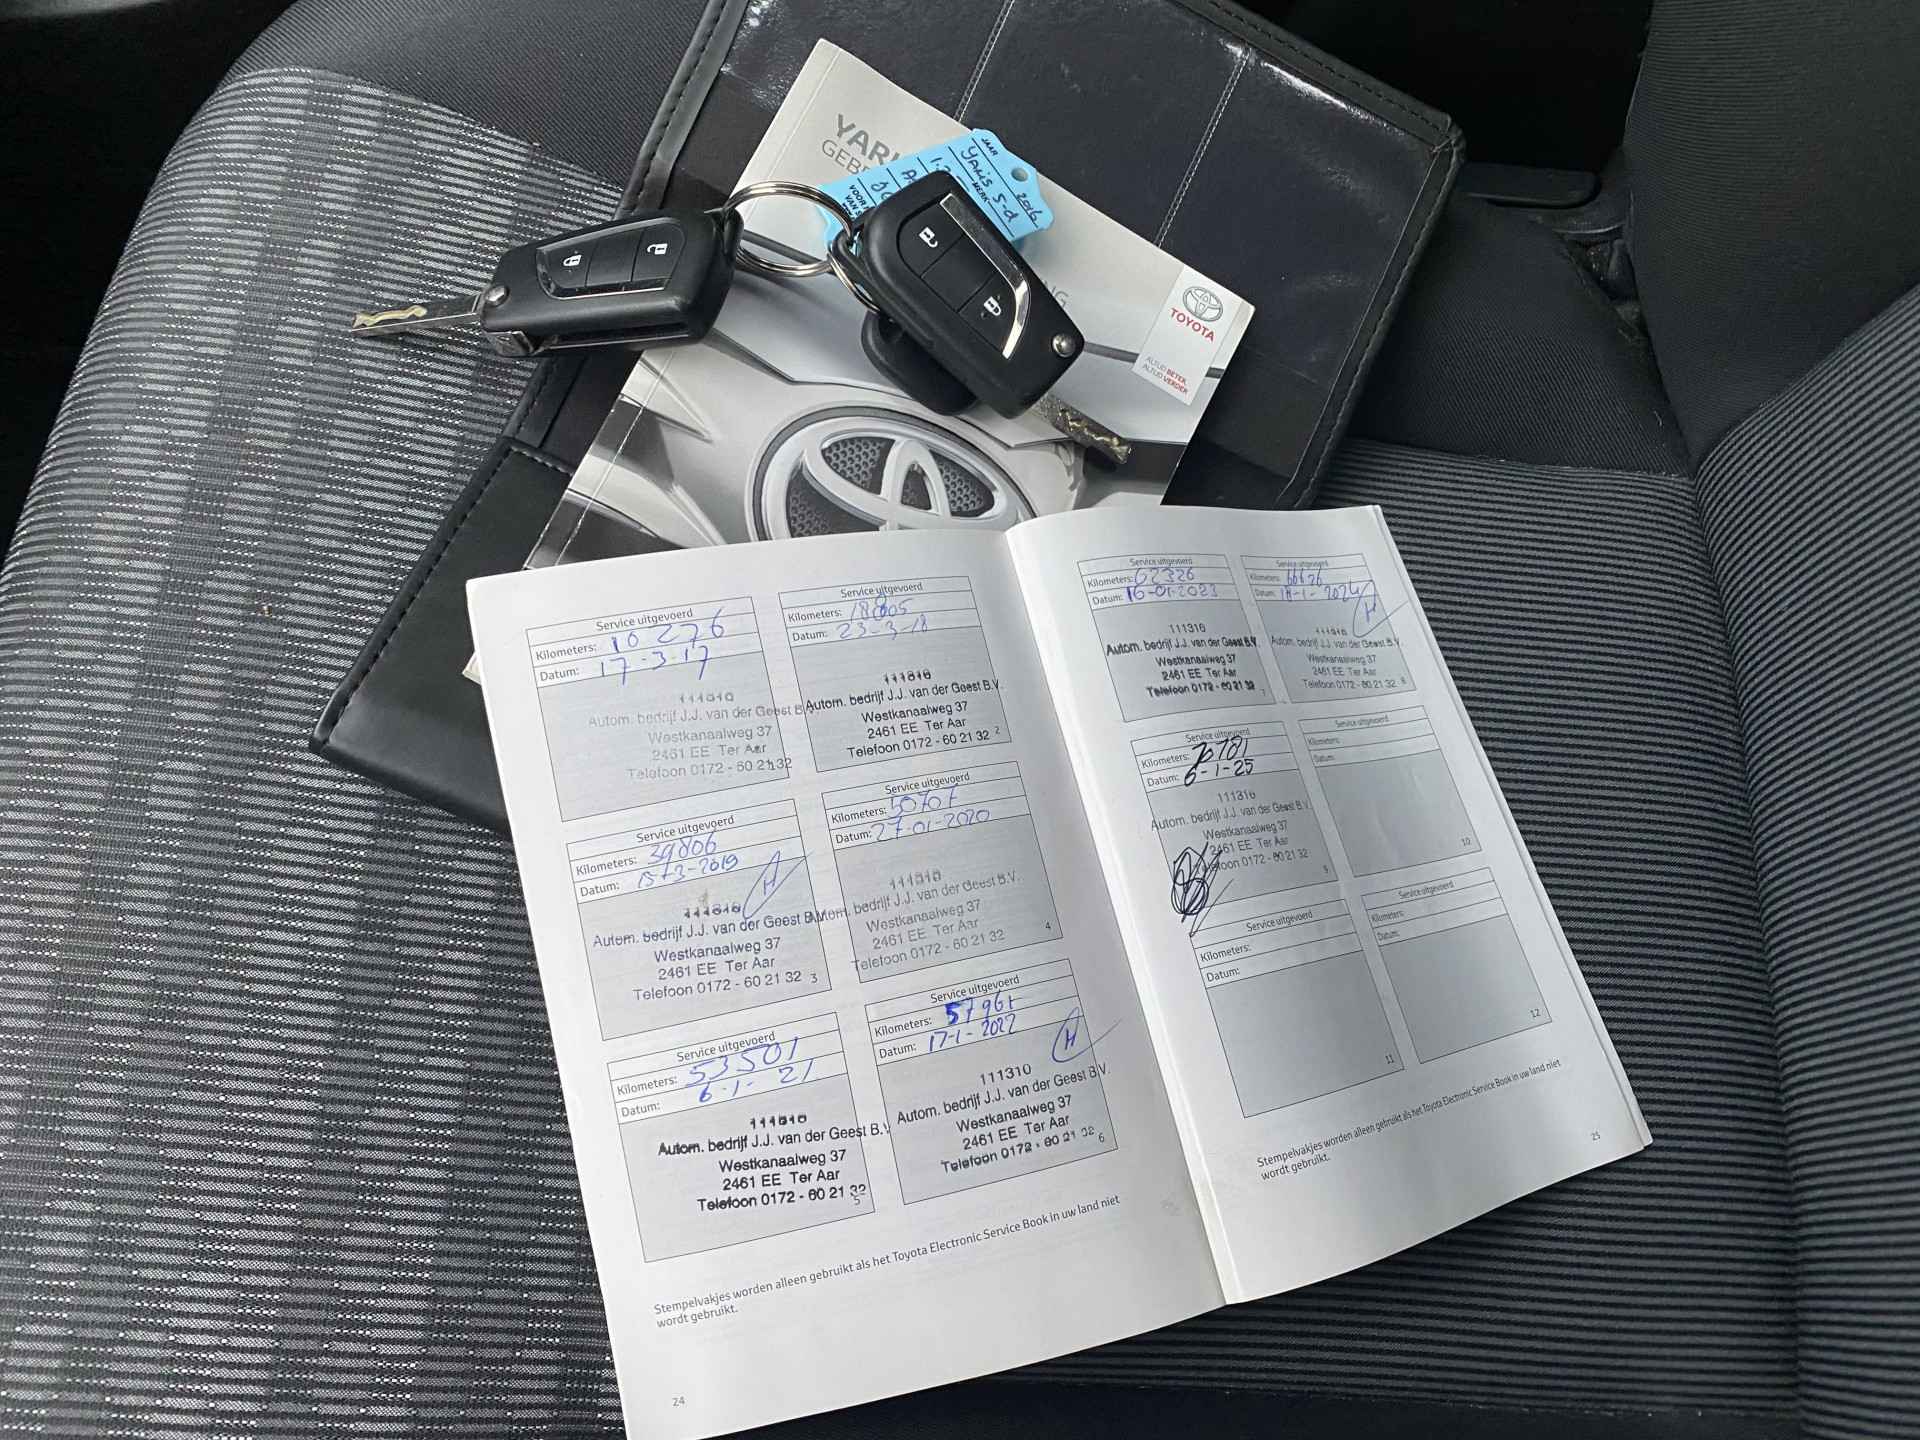 JAAR
2016
MERK
YARIS 5-d
VOOR
VAN
TOYOTA
ALTIJD BETER
ALTIJD VERDER
Service uitgevoerd
Kilometers: 10276
Datum: 17-3-17
Autom. bedrijf J.J. van der Geest B.V.
Westkanaalweg 37
2461 EE Ter Aar
Telefoon 0172 - 60 21 32
Service uitgevoerd
Kilometers: 18805
Datum: 23-3-18
Autom. bedrijf J.J. van der Geest B.V.
Westkanaalweg 37
2461 EE Ter Aar
Telefoon 0172 - 60 21 32
2
Service uitgevoerd
Kilometers: 39806
Datum: 15-3-2019
H
Autom. bedrijf J.J. van der Geest B.V.
Westkanaalweg 37
2461 EE Ter Aar
Telefoon 0172 - 60 21 32
3
Service uitgevoerd
Kilometers: 50707
Datum: 27-01-2020
Autom. bedrijf J.J. van der Geest B.V.
Westkanaalweg 37
2461 EE Ter Aar
Telefoon 0172 - 60 21 32
4
Service uitgevoerd
Kilometers: 53501
Datum: 6-1-21
Autom. bedrijf J.J. van der Geest B.V.
Westkanaalweg 37
2461 EE Ter Aar
Telefoon 0172 - 60 21 32
5
Service uitgevoerd
Kilometers: 57961
Datum: 17-1-2022
H
111310
Autom. bedrijf J.J. van der Geest B.V.
Westkanaalweg 37
2461 EE Ter Aar
Telefoon 0172 - 60 21 32
6
Stempelvakjes worden alleen gebruikt als het Toyota Electronic Service Book in uw land niet
wordt gebruikt.
24
Service uitgevoerd
Kilometers: 62326
Datum: 16-01-2023
111310
Autom. bedrijf J.J. van der Geest B.V.
Westkanaalweg 37
2461 EE Ter Aar
Telefoon 0172 - 60 21 32
7
Service uitgevoerd
Kilometers: 66626
Datum: 18-1-2024
H
Autom. bedrijf J.J. van der Geest B.V.
Westkanaalweg 37
2461 EE Ter Aar
Telefoon 0172 - 60 21 32
8
Service uitgevoerd
Kilometers: 70781
Datum: 6-1-25
111310
Autom. bedrijf J.J. van der Geest B.V.
Westkanaalweg 37
2461 EE Ter Aar
Telefoon 0172 - 60 21 32
9
Service uitgevoerd
Kilometers:
Datum:
10
Service uitgevoerd
Kilometers:
Datum:
11
Service uitgevoerd
Kilometers:
Datum:
12
Stempelvakjes worden alleen gebruikt als het Toyota Electronic Service Book in uw land niet
wordt gebruikt.
25